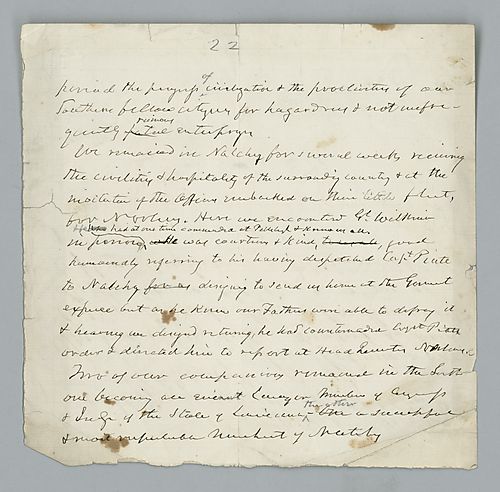 22
period the progress of civilization & the proclivities of our
Southern fellow citizens for hazardous & not unfre-
quently ruinous fatal enterprize
We remained in Natchez for several weeks receiving
the civilities & hospitality of the surrounding country & at the
invitation of the Officers embarked on their little fleet,
for N Orleans. Here we encountered Gl Wilkinson
He had at one time commanded at Pittsburgh & Known us all
in person, He was courteous & Kind, good
humouredly referring to his having dispatched Capt
to Natchez for as designing to send us home at the Governt
expense but as he Knew our Fathers were able to defray it
& hearing we designed returning, he had countermanded Capt
orders & directed him to report at Head Quarters
Two of our companions remained in the South
one becoming an eminent Lawyer, Member of Congress
& Judge of the State of Louisiana, the other a successful
& most respectable Merchant of Natchez